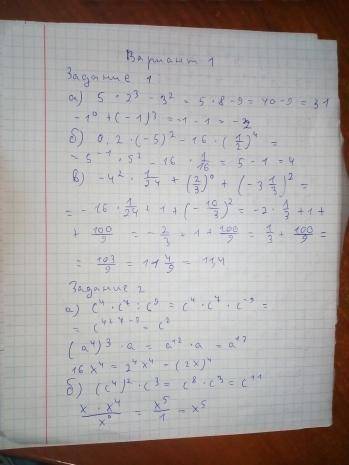 Вариант 1
Задание 1
а) 5 · 2³ - 3² = 5 · 8 - 9 = 40 - 9 = 31
-1⁰ + (-1)³ = -1 - 1 = -2
б) 0,2 · (-5)² - 16 · (1/2)⁴ =
= 5⁻¹ · 5² - 16 · 1/16 = 5 - 1 = 4
в) -4² · 1/24 + (2/3)⁰ + (-3 1/3)² =
= -16 · 1/24 + 1 + (-10/3)² = -2 · 1/3 + 1 +
+ 100/9 = -2/3 + 1 + 100/9 = 1/3 + 100/9 =
= 103/9 = 11 4/9 = 11,4
Задание 2
а) c⁴ · c⁷ : c⁹ = c⁴ · c⁷ · c⁻⁹ =
= c⁴⁺⁷⁻⁹ = c²
(a⁴)³ · a = a¹² · a = a¹³
16x⁴ = 2⁴x⁴ = (2x)⁴
б) (c⁴)² · c³ = c⁸ · c³ = c¹¹
x · x⁴/x⁰ = x⁵/1 = x⁵